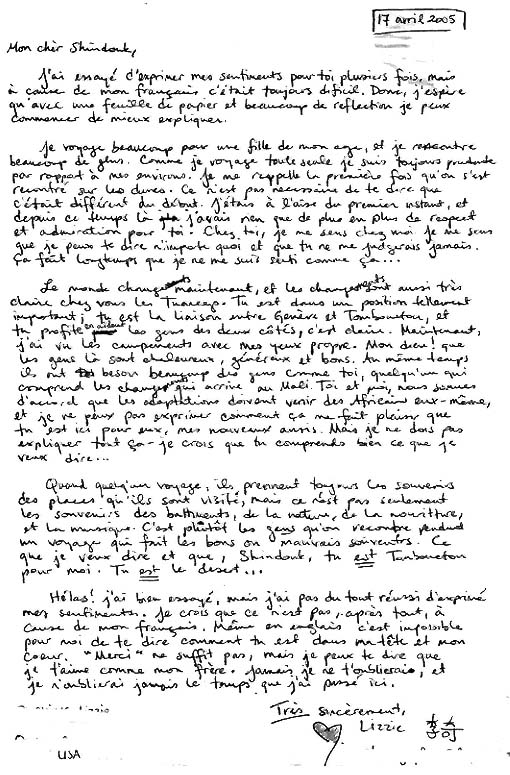 17 avril 2005
Mon chèr Shindouk,
J'ai essayé d'exprimer mes sentiments pour toi plusiers fois, mais
à cause de mon français c'était toujours dificil. Donc, j'espère
qu'avec une feuille de papier et beaucoup de reflection je peux
commencer de mieux expliquer.
Je voyage beaucoup pour une fille de mon age, et je rencontre
beaucoup de gens. Comme je voyage toute seule je suis toujours prudente
par rapport à mes environs. Je me rappelle la première fois qu'on s'est
recontré sur les dunes. Ce n'est pas necessaire de te dire que
c'était différent du début. J'étais à l'aise du premier instant, et
depuis ce temps là j'avais rien que de plus en plus de respect
et admiration pour toi. Chez toi, je me sens chez moi. Je me sens
que je peux te dire n'importe quoi et que tu ne me judgerais jamais.
Ça fait longtemps que je ne me suis senti comme ça...
Le monde change maintenant, et les changements sont aussi très
claire chez vous les Tuareg. Tu est dans un position tellement
important; tu est la liaison entre Genève et Tombouctou, et
tu profite en aidant les gens des deux côtés, c'est claire. Maintenant,
j'ai vu les campements avec mes yeux propre. Mon dieu! que
les gens là sont chaleureux, généraux et bons. Au même temps
ils ont besoin beaucoup des gens comme toi, quelqu'un qui
comprend les changements qui arrive au Mali. Toi et moi, nous sommes
d'accord que les adaptations doivent venir des Africains eux-même,
et je ne peux pas exprimer comment ça me fait plaisir que
tu est ici pour eux, mes nouveaux amis. Mais je ne dois pas
expliquer tout ça - je crois que tu comprends bien ce que je
veux dire...
Quand quelqu'un voyage, ils prennent toujours les souvenirs
des places qu'ils sont visité, mais ce n'est pas seulement
les souvenirs des battiments, de la nature, de la nourriture,
et la musique. C'est plutôt les gens qu'on recontre pendant
un voyage qui fait les bons ou mauvais souvenirs. Ce
que je veux dire et que, Shindouk, tu est Tombouctou
pour moi. Tu est le desert...
Hélas! j'ai bien essayé, mais j'ai pas du tout réussi d'exprimé
mes sentiments. Je crois que ce n'est pas, après tout, à
cause de mon français. Même en englais c'est impossible
pour moi de te dire comment tu est dans ma tête et mon
coeur. "Merci" ne suffit pas, mais je peux te dire que
je t'aime comme mon frère. Jamais je ne t'oublierais, et
je n'oublierai jamais le temps que j'ai passé ici.
Très sincèrement,
Lizzie
USA